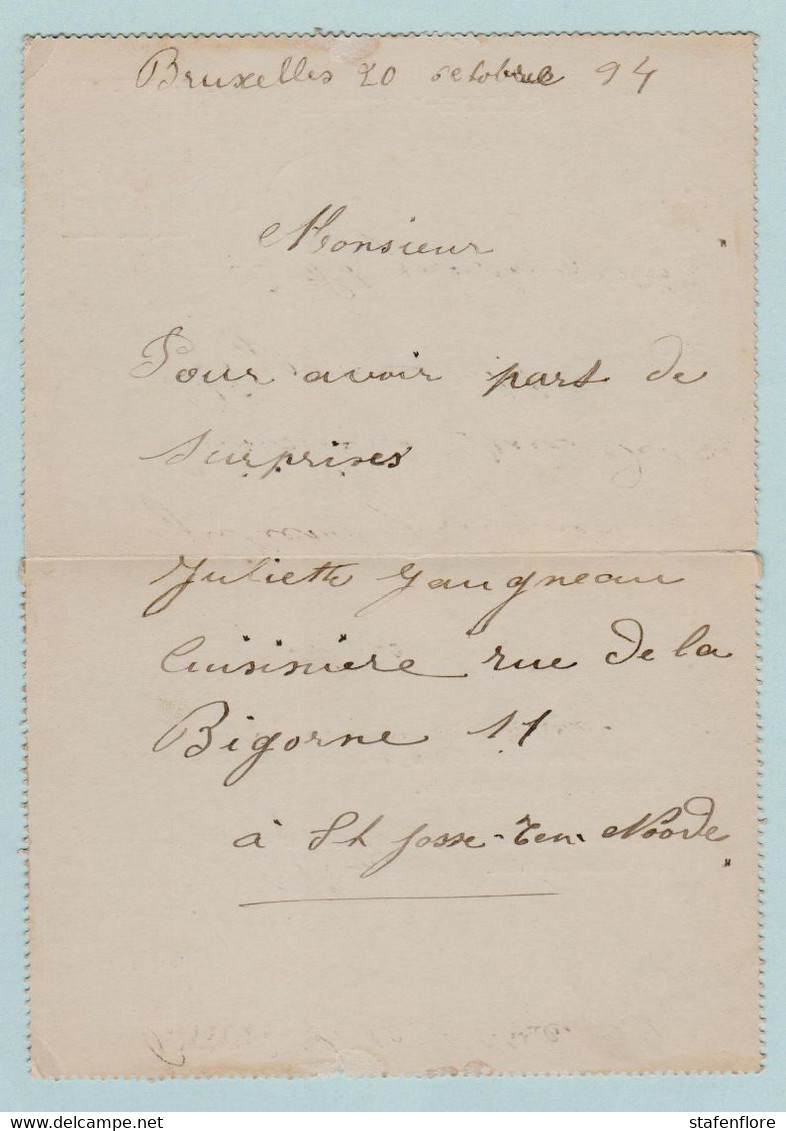 Bruxelles 20 octobre 94
Monsieur
Pour avoir part de
Surprises
Juliette Gaugneau
Cuisiniere rue de la
Bigorne 11
à St Josse-Ten Noode
delcampe.net
stafenflore